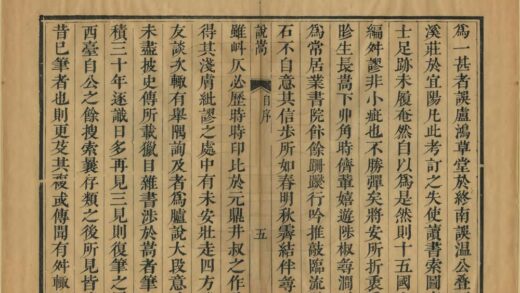 爲一甚者誤盧鴻草堂於終南誤温公疊
溪莊於宜陽凡此考訂之失使讀書索圖
士足跡未履奄然自以爲是然則十五國
編舛謬非小疵也不勝彈矣將安所折衷
昣生長嵩下丱角時儕輩嬉遊陟椒尋澗
爲常居業書院餘行吟推敲臨流
石不自意其信步所如春明秋霽結伴尋
說嵩
自序
五
雖仄必歷時時印比於元鼎井叔之作
得其淺膚紕謬之處中有未安壯走四方
友談次輒有舉隅詢及者爲臚說大段意
未盡披史傳所載獵目雜書涉於嵩者筆
積三十年逐識日多再見三見則復筆之
西臺自公之餘搜索囊存類之後所見皆
昔已筆者也則更芟其複或傳聞有舛輒